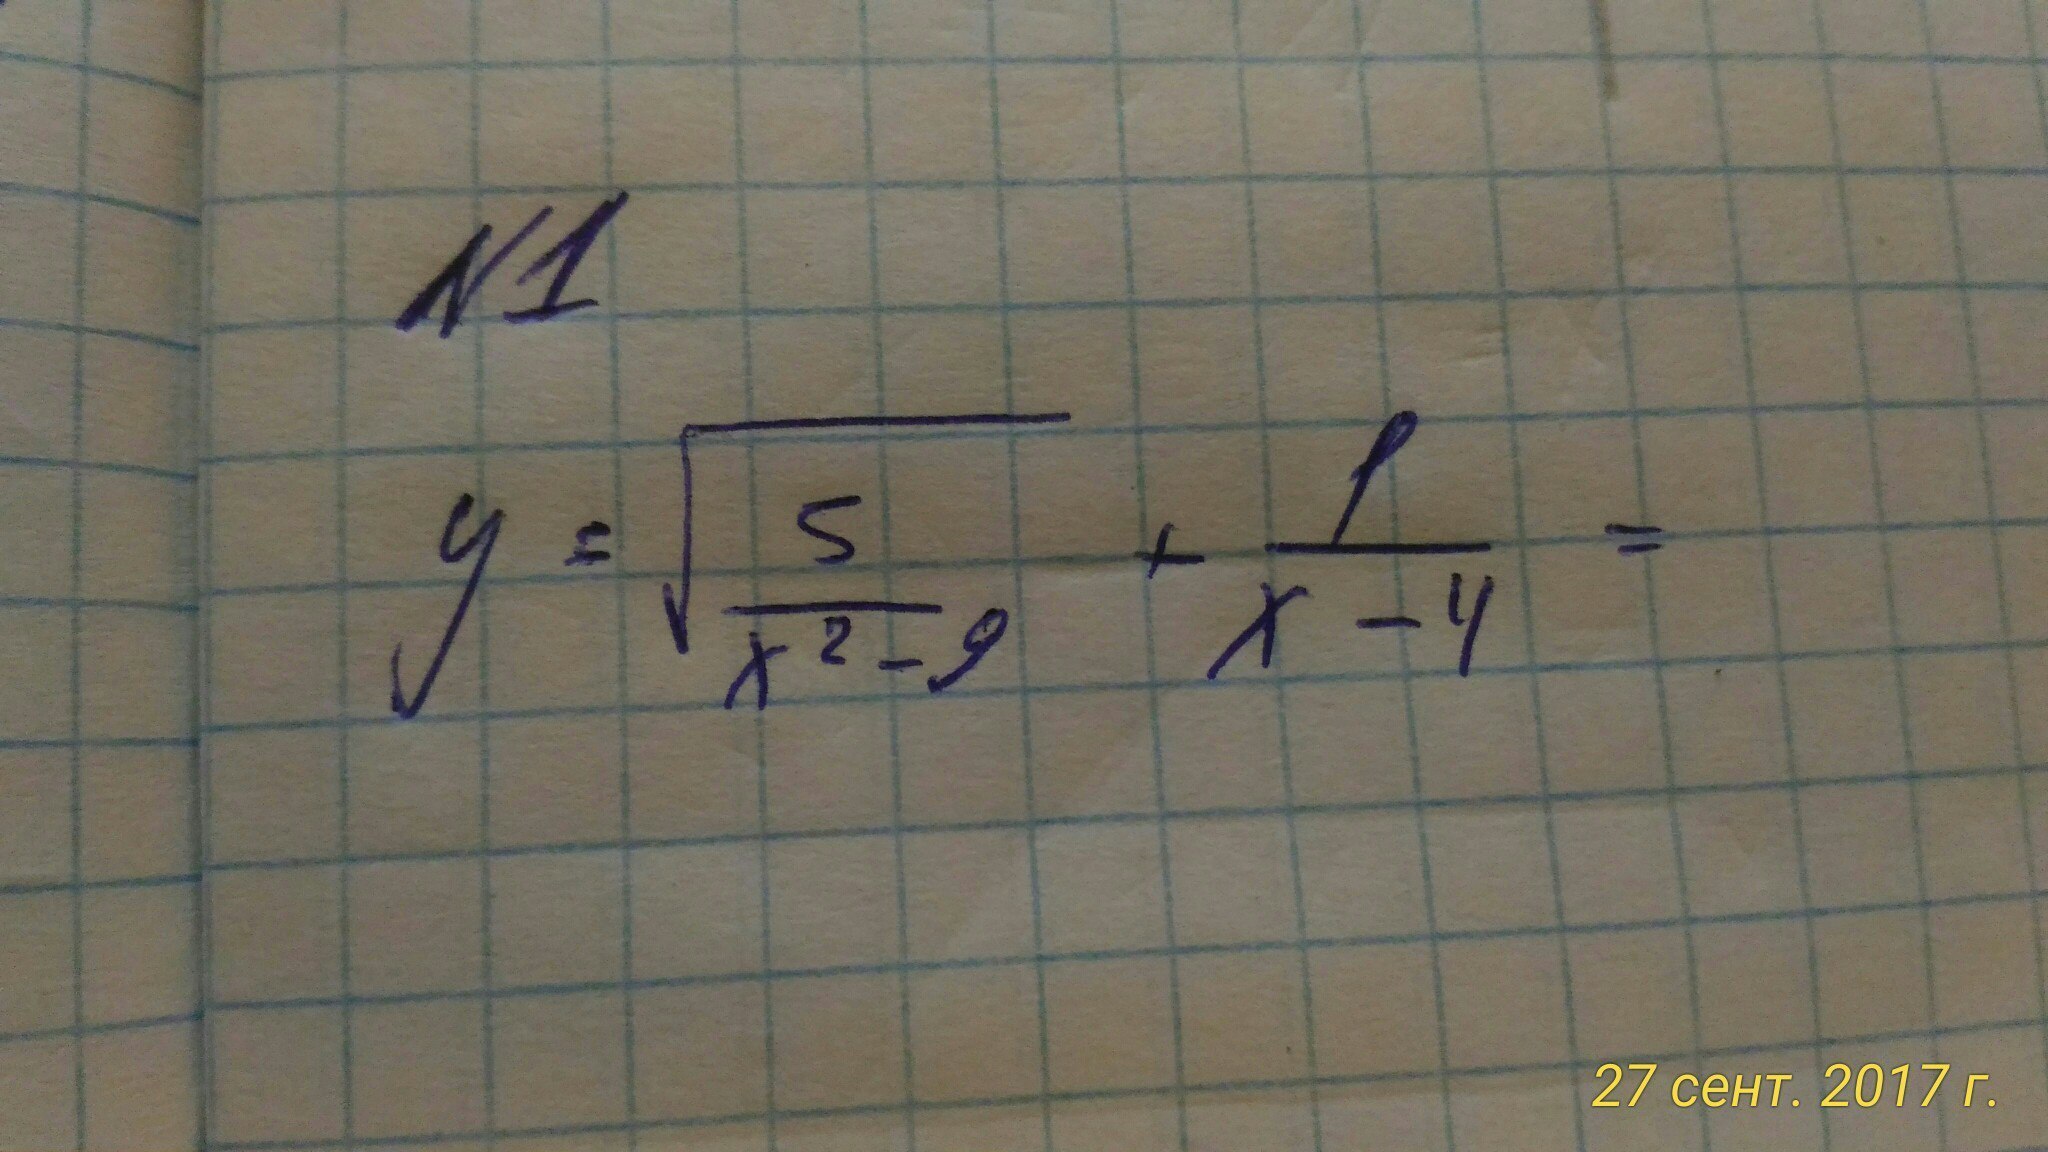 N1
y = √(5/(x² - 9)) + 1/(x - 4) =
27 сент. 2017 г.